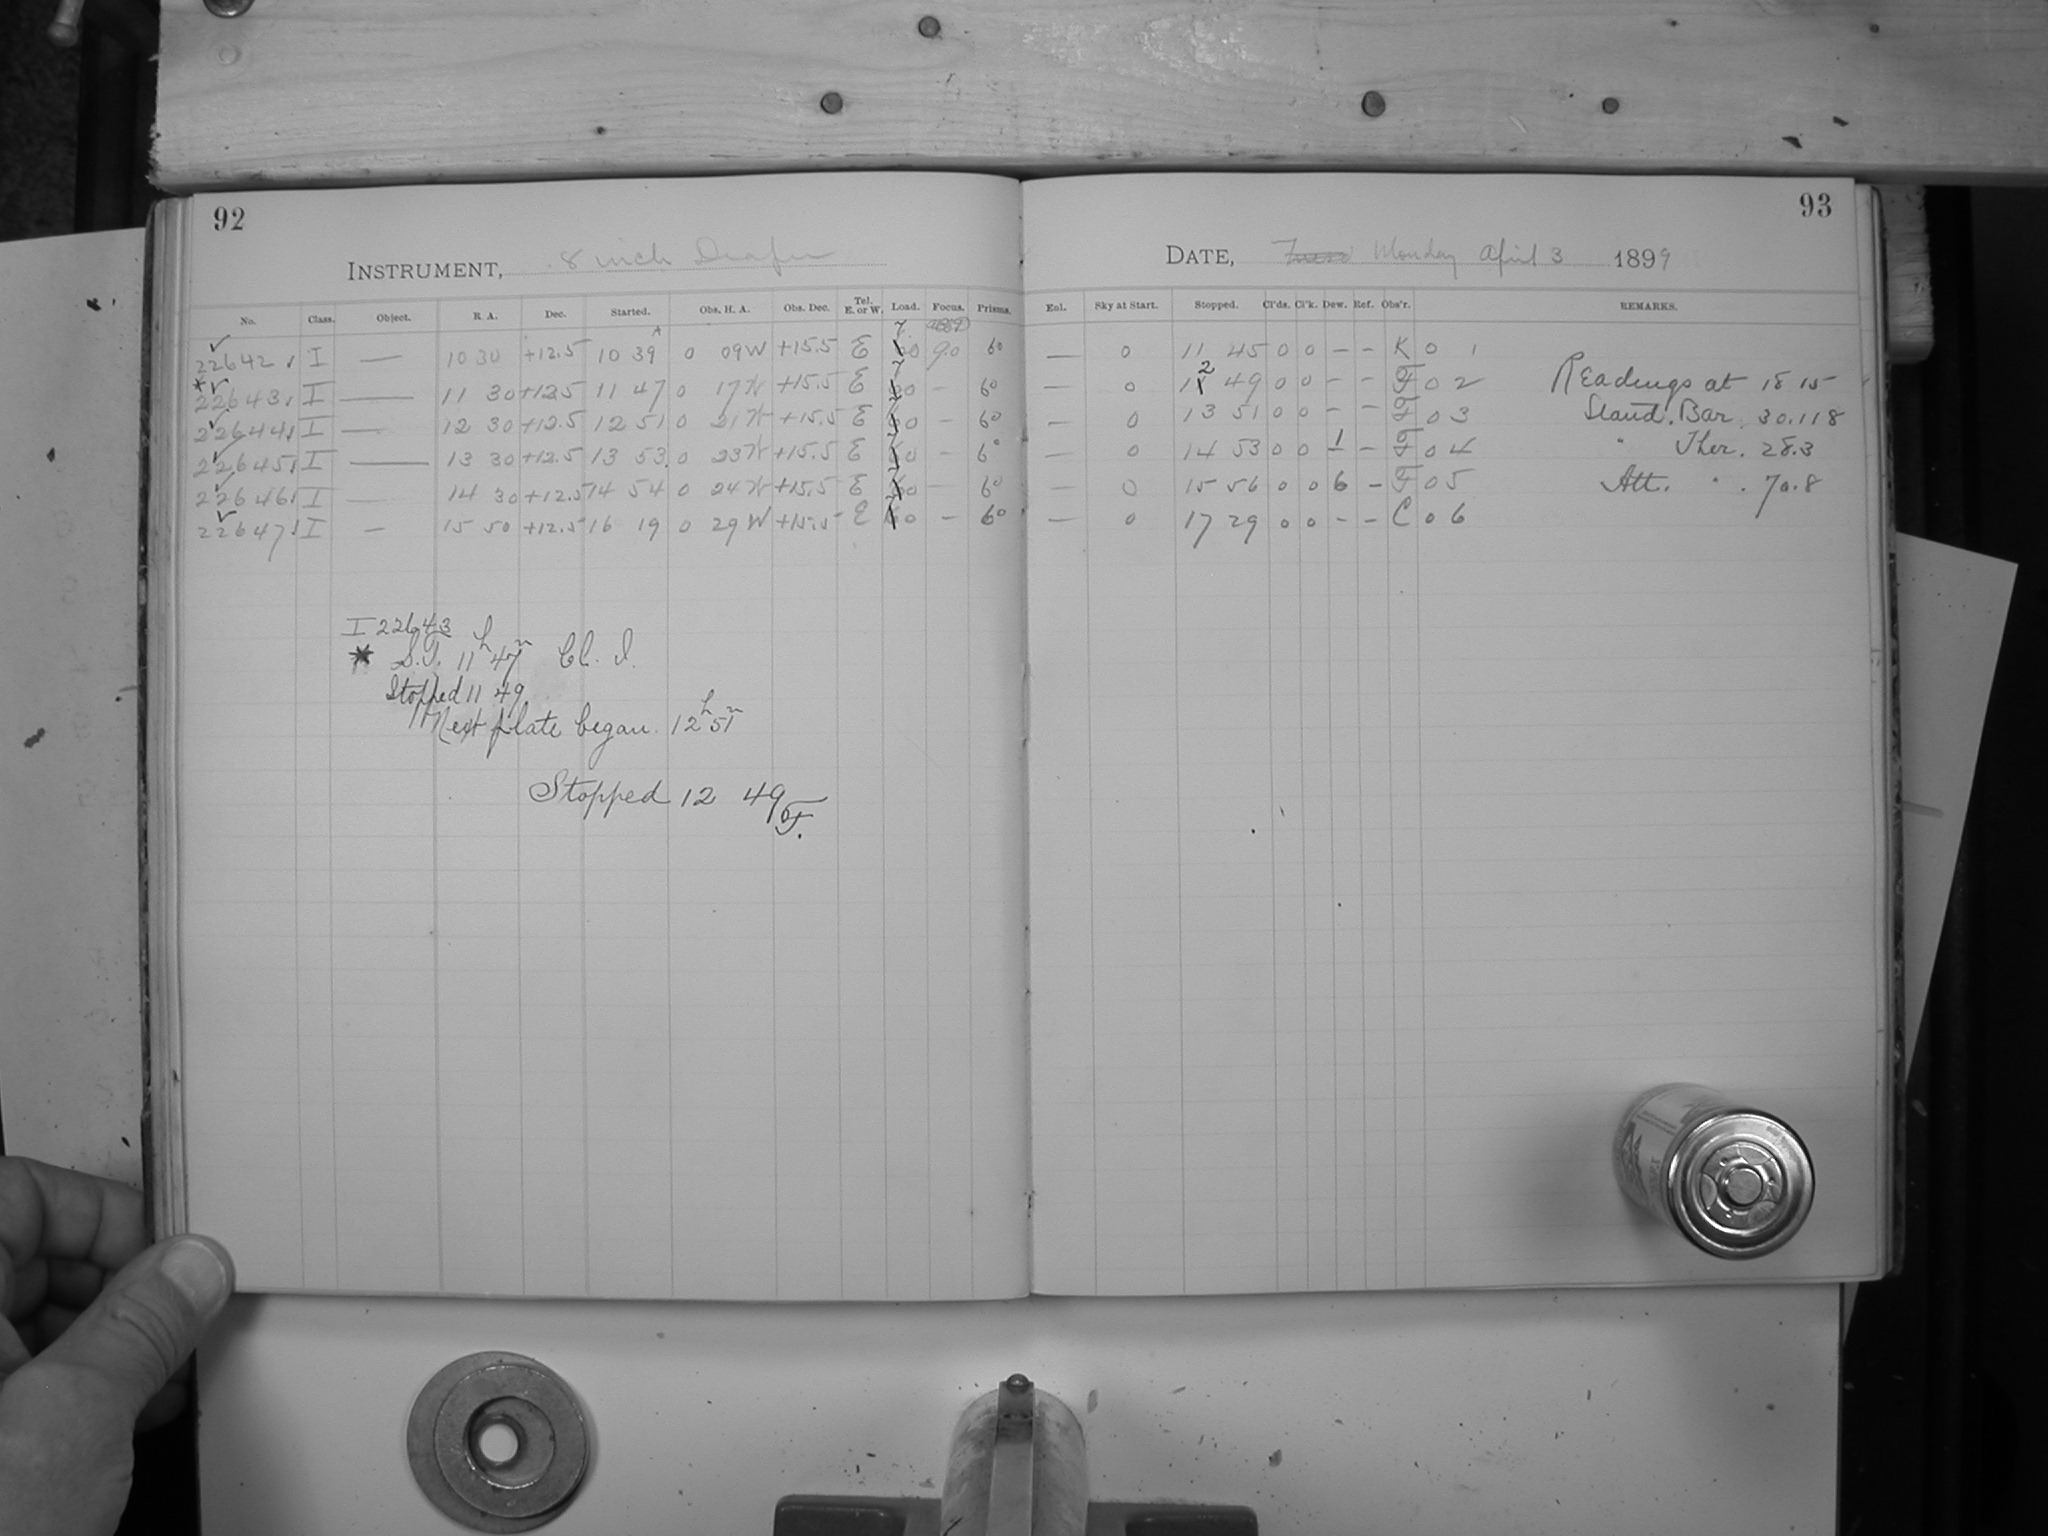 92
INSTRUMENT, 8 inch Draper
No. Class. Object. R. A. Dec. Started. Obs. H. A. Obs. Dec. Tel. E. or W. Load. Focus. Prisms.
22642 I — 10 30 +12.5 10 39 0 09 W +15.5 E 90 60
22643 I — 11 30 +12.5 11 47 0 17 W +15.5 E — 60
22644 I — 12 30 +12.5 12 51 0 21 W +15.5 E — 60
22645 I — 13 30 +12.5 13 53 0 23 W +15.5 E — 60
22646 I — 14 30 +12.5 14 54 0 24 W +15.5 E — 60
22647 I — 15 50 +12.5 16 19 0 29 W +15.5 E — 60
I 22643
* S.T. 11h 47m Cl. I.
Stopped 11 49
Next plate began 12h 51m
Stopped 12 49 F.
93
DATE, Monday April 3 1899
Enl. Sky at Start. Stopped. Cl'ds. Cl'k. Dew. Ref. Obs'r. REMARKS.
— 0 11 45 0 0 – – K 0 1
— 0 12 49 0 0 – – F 0 2 Readings at 18 15
— 0 13 51 0 0 – – F 0 3 Stand. Bar. 30.118
— 0 14 53 0 0 1 – F 0 4 " Ther. 28.3
— 0 15 56 0 0 6 – F 0 5 Att. " . 70.8
— 0 17 29 0 0 – – C 0 6